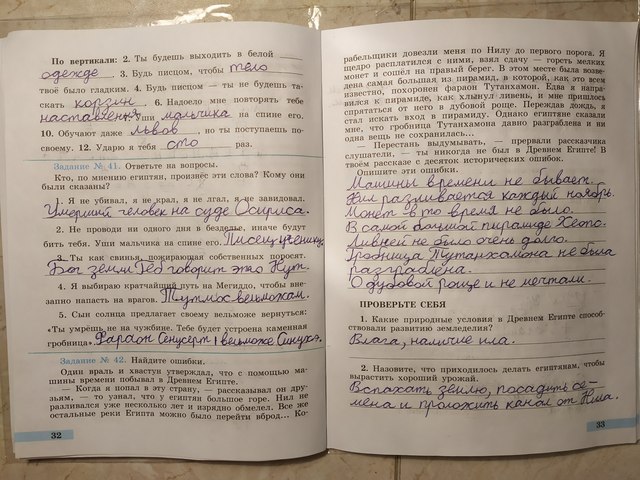 По вертикали: 2. Ты будешь выходить в белой
одежде. 3. Будь писцом, чтобы тело
твоё было гладким. 4. Будь писцом — ты не будешь та-
скать корзин. 6. Надоело мне повторять тебе
наставления, уши мальчика на спине его.
10. Обучают даже львов, но ты поступаешь по-
своему. 12. Ударю я тебя сто раз.
Задание № 41. Ответьте на вопросы.
Кто, по мнению египтян, произнёс эти слова? Кому они
были сказаны?
1. Я не убивал, я не крал, я не лгал, я не завидовал.
Умерший человек на суде Осириса.
2. Не проводи ни одного дня в безделье, иначе будут
бить тебя. Уши мальчика на спине его. Писец ученику
3. Ты как свинья, пожирающая собственных поросят.
Бог земли Геб говорит это Нут.
4. Я выбираю кратчайший путь на Мегиддо, чтобы вне-
запно напасть на врагов. Тутмос вельможам.
5. Сын солнца предлагает своему вельможе вернуться:
«Ты умрёшь не на чужбине. Тебе будет устроена каменная
гробница». Фараон Сенусерт I вельможе Синухэ.
Задание № 42. Найдите ошибки.
Один враль и хвастун утверждал, что с помощью ма-
шины времени побывал в Древнем Египте.
— Когда я попал в эту страну, — рассказывал он дру-
зьям, — то узнал, что у египтян большое горе. Нил не
разливался уже несколько лет и изрядно обмелел. Все же
остальные реки Египта можно было перейти вброд... Ко-
32
рабельщики довезли меня по Нилу до первого порога. Я
щедро расплатился с ними, взял сдачу — горсть мелких
монет и сошёл на правый берег. В этом месте была возве-
дена самая большая из пирамид, в которой, как это всем
известно, похоронен фараон Тутанхамон. Едва я напра-
вился к пирамиде, как хлынул ливень, и мне пришлось
спрятаться от него в дубовой роще. Переждав дождь, я
стал искать вход в пирамиду. Однако египтяне сказали
мне, что гробница Тутанхамона давно разграблена и ни
одна вещь не сохранилась...
— Перестань выдумывать, — прервали рассказчика
слушатели, — ты никогда не был в Древнем Египте! В
твоём рассказе с десяток исторических ошибок.
Опишите эти ошибки.
Машины времени не бывает.
Нил разливается каждый ноябрь.
Монет в то время не было.
В самой большой пирамиде Хеопс.
Ливней не было очень долго.
Гробница Тутанхамона не была
разграблена.
О дубовой роще и не мечтали.
ПРОВЕРЬТЕ СЕБЯ
1. Какие природные условия в Древнем Египте способ-
ствовали развитию земледелия?
Влага, наличие ила.
2. Назовите, что приходилось делать египтянам, чтобы
вырастить хороший урожай.
Вспахать землю, посадить се-
мена и проложить канал от Нила.
33